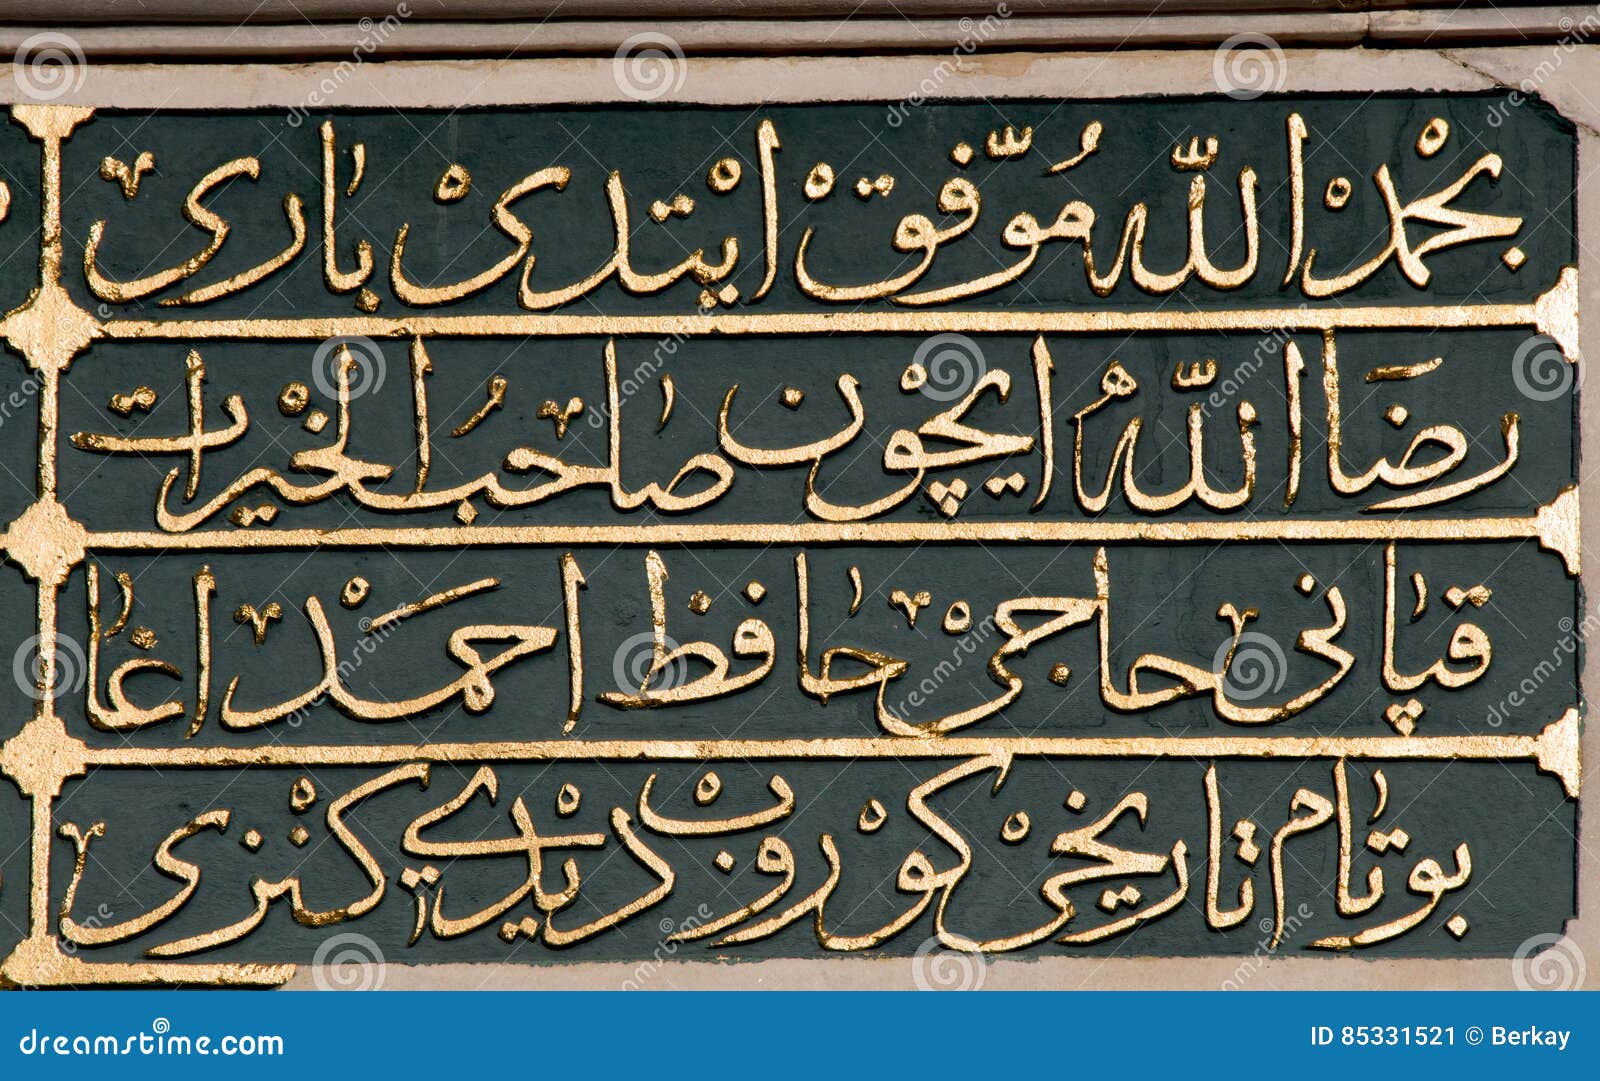 بحمد الله مُوَفّق ايتدى بارى
رضَا الله ايچون صاحبُ الخيرات
قپانى حاجى حافظ احمد اغا
بو تام تاريخى كورون ديدى كنزى
dreamstime.com
ID 85331521 © Berkay